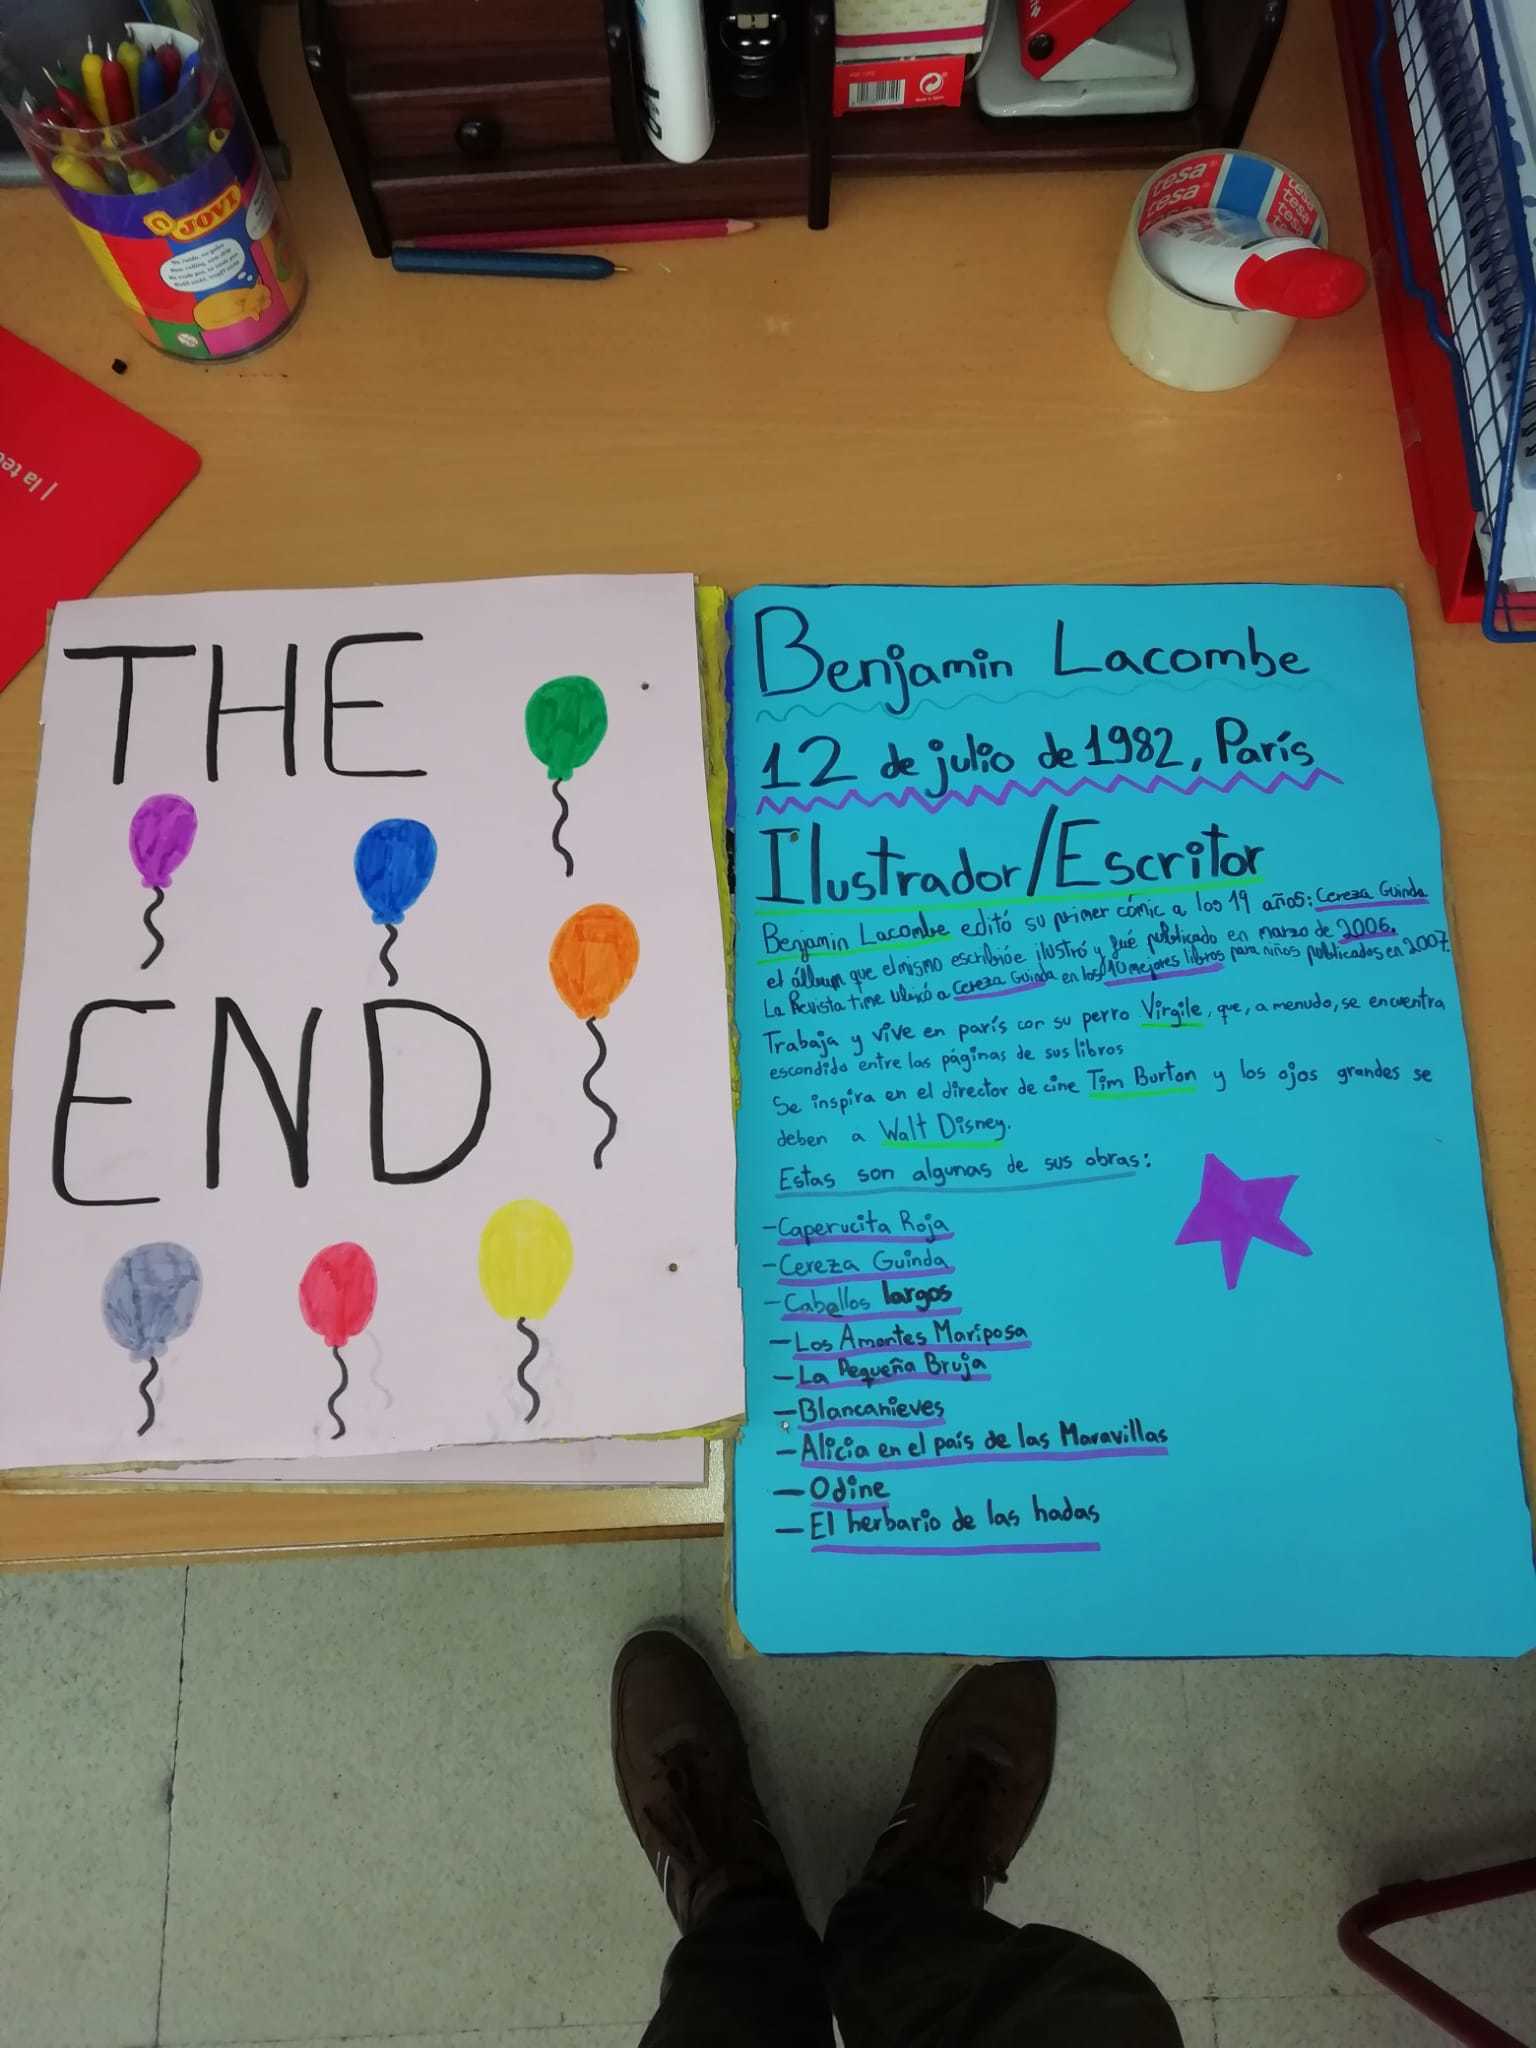 JOVI
tesa
tesa
tesa
tesa
| la tec
THE
END
Benjamin Lacombe
12 de julio de 1982, París
Ilustrador/Escritor
Benjamin Lacombe editó su primer cómic a los 19 años: Cereza Guinda
el álbum que el mismo escribió e ilustró y fué publicado en marzo de 2006.
La Revista time ubicó a Cereza Guinda en los 10 mejores libros para niños publicados en 2007.
Trabaja y vive en parís con su perro Virgile, que, a menudo, se encuentra
escondido entre las páginas de sus libros
Se inspira en el director de cine Tim Burton y los ojos grandes se
deben a Walt Disney.
Estas son algunas de sus obras:
- Caperucita Roja
- Cereza Guinda
- Cabellos largos
- Los Amantes Mariposa
- La Pequeña Bruja
- Blancanieves
- Alicia en el país de las Maravillas
- Odine
- El herbario de las hadas